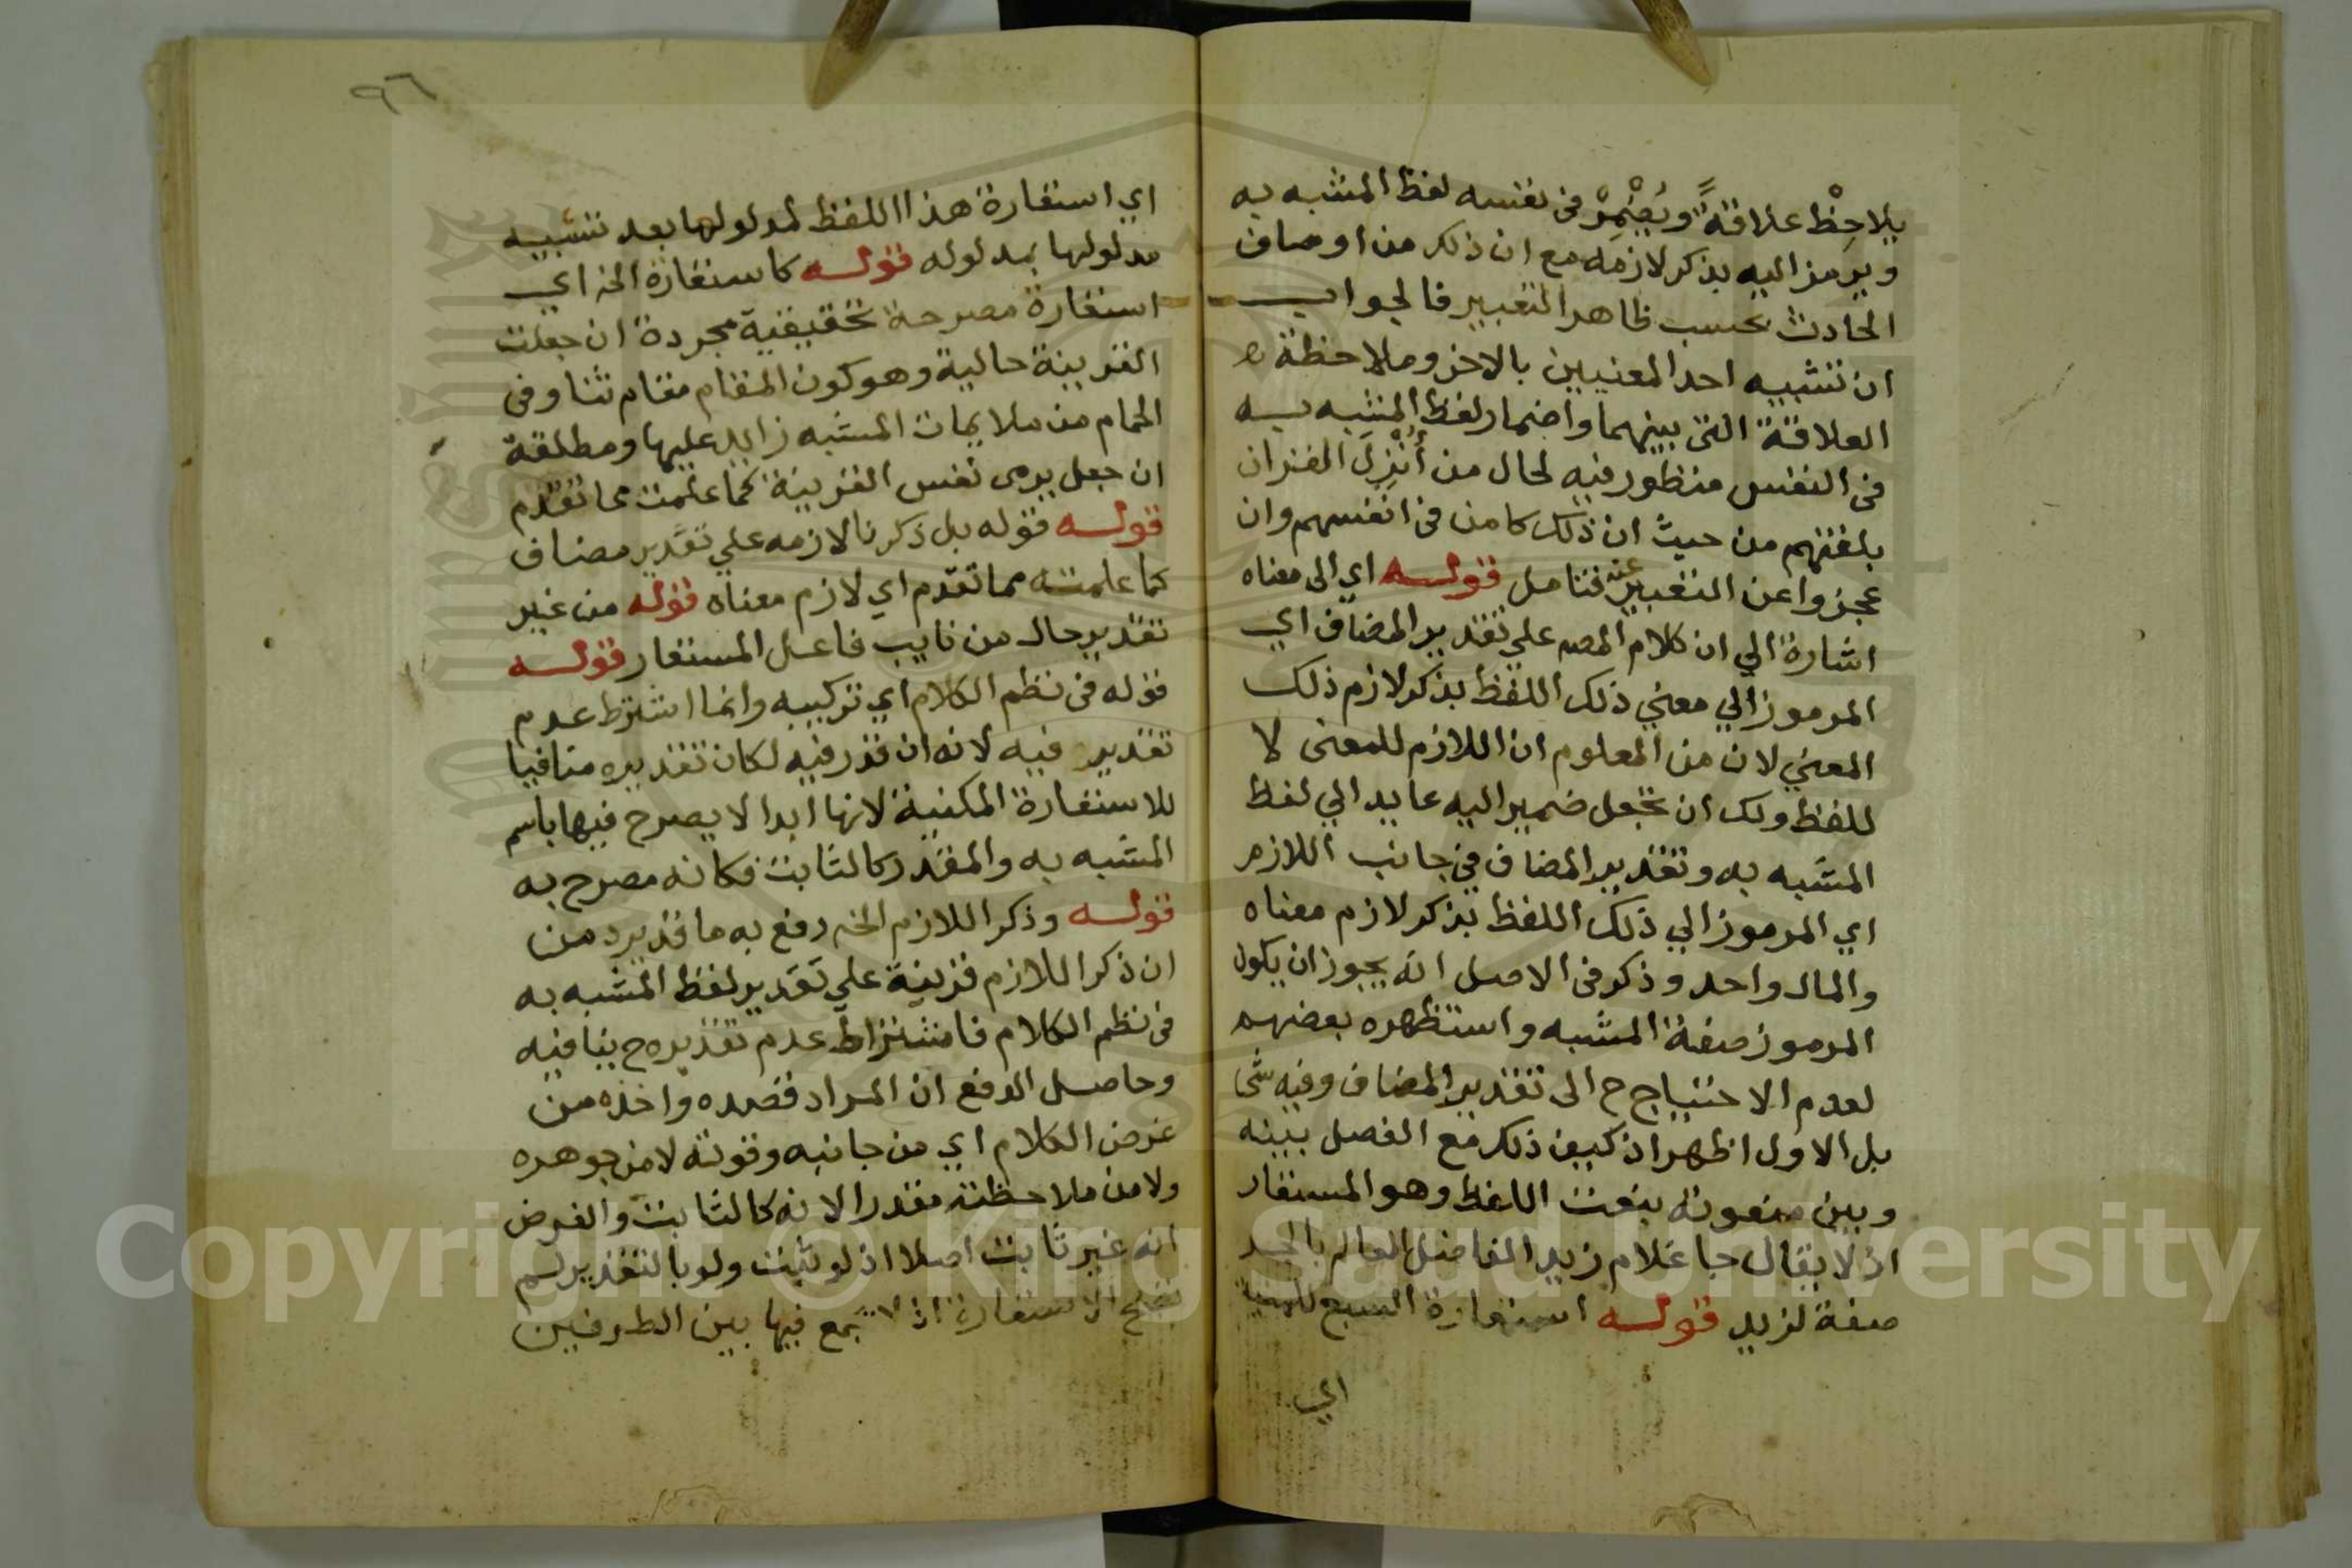 يلاحِظْ علاقةً ويُضْمِرْ في نفسه لفظ المشبه به
ويرمز اليه بذكر لازمه مع ان ذلك من اوصاف
الحادث بحسب ظاهر التعبير فالجواب
ان تشبيه احد المعنيين بالاخر وملاحظة
العلاقة التي بينهما واضمار لفظ المشبه به
في النفس منظور فيه لحال من أُنْزِلَ القران
بلغتهم من حيث ان ذلك كامن في انفسهم وان
عجزوا عن التعبير عنه فتامل قوله اي الى معناه
اشارة الي ان كلام المصـ علي تقدير المضاف اي
المرموز الي معني ذلك اللفظ بذكر لازم ذلك
المعني لان من المعلوم ان اللازم للمعنى لا
للفظ ولك ان تجعل ضمير اليه عايد الي لفظ
المشبه به وتقدير المضاف في جانب اللازم
اي المرموز الي ذلك اللفظ بذكر لازم معناه
والمال واحد وذكر في الاصل انه يجوز ان يكون
المرموز صفة المشبه واستظهره بعضهم
لعدم الاحتياج ح الى تقدير المضاف وفيه شي
بل الاول اظهر اذ كيف ذلك مع الفصل بينه
وبين منعوته بنعت اللفظ وهو المستعار
اذ لا يقال جا غلام زيد الفاضل العالم بالجر
صفة لزيد قوله استعارة السبع للمنية
اي
٩٦
اي استعارة هذا اللفظ لمدلولها بعد تشبيه
مدلولها بمدلوله قوله كاستعارة الخ اي
استعارة مصرحة تحقيقية مجردة ان جعلت
القرينة حالية وهو كون المقام مقام ثنا وفي
الحمام من ملايمات المشبه زايد عليها ومطلقة
ان جعل يرمى نفس القرينة كما علمت مما تقدم
قوله قوله بل ذكرنا لازمه علي تقدير مضاف
كما علمته مما تقدم اي لازم معناه قوله من غير
تقدير حال من نايب فاعل المستعار قوله
قوله في نظم الكلام اي تركيبه وانما اشترط عدم
تقدير فيه لانه ان قدر فيه لكان تقديره منافيا
للاستعارة المكنية لانها ابدا لا يصرح فيها باسم
المشبه به والمقدر كالثابت فكانه مصرح به
قوله وذكر اللازم الخ دفع به ما قد يرد من
ان ذكر اللازم قرينة علي تقدير لفظ المشبه به
في نظم الكلام فاشتراط عدم تقديره ح ينافيه
وحاصل الدفع ان المراد قصده واخذه من
عرض الكلام اي من جانبه وقوته لا من جوهره
ولا من ملاحظته مقدرا لانه كالثابت والفرض
انه غير ثابت اصلا اذ لو ثبت ولو بالتقدير لم
تصح الاستعارة اذ لا يجمع فيها بين الطرفين
Copyright © King Saud University